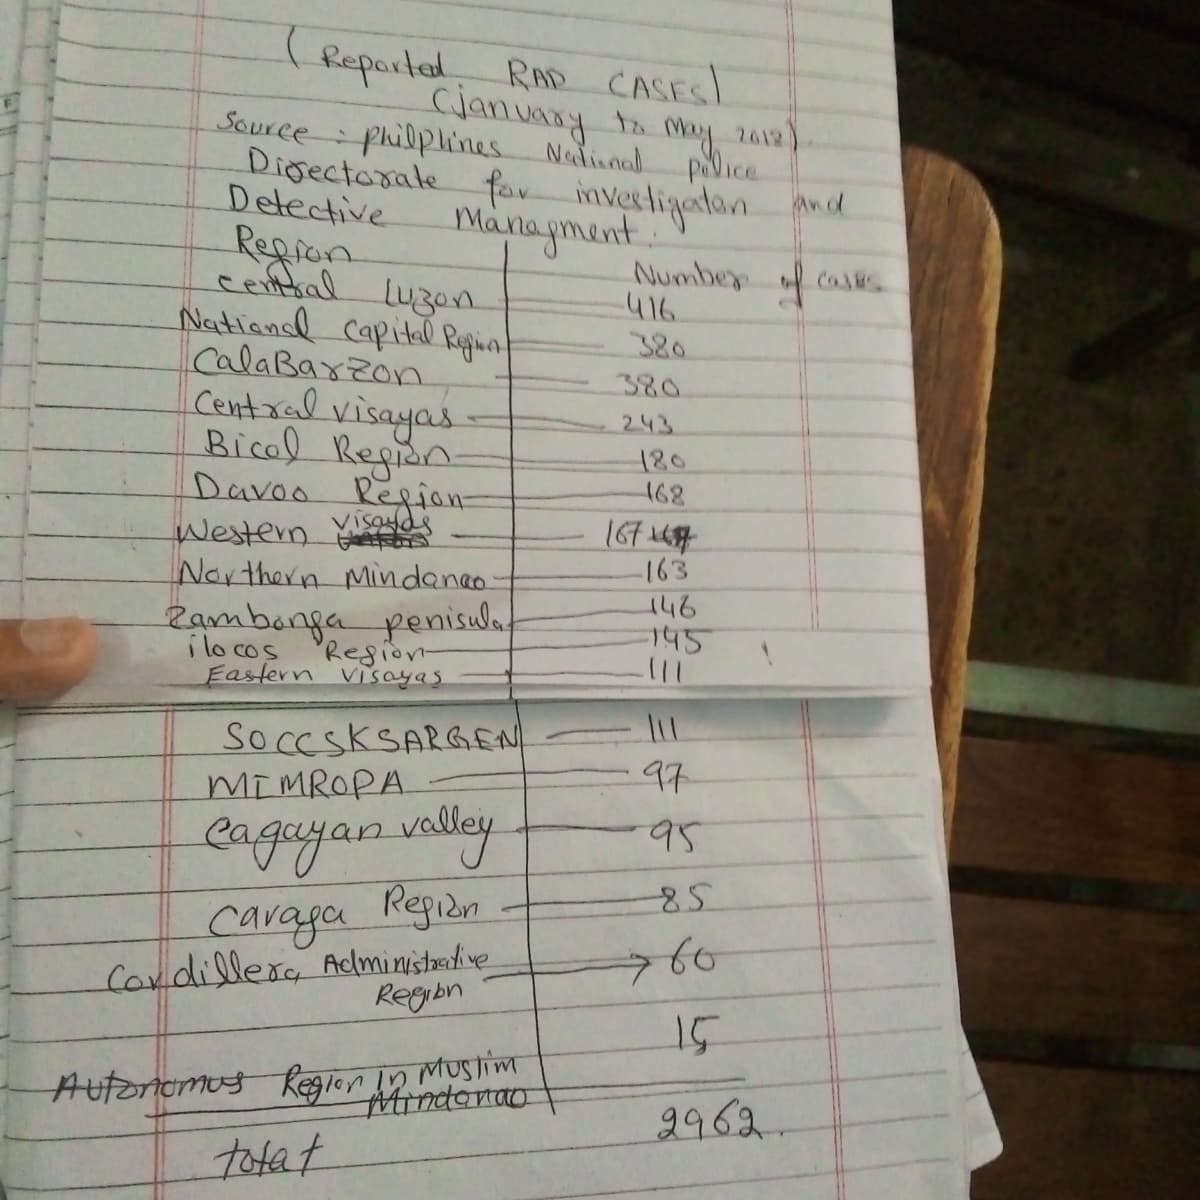 ( Reported RAP CASES)
(january to May 2018)
Source : philplines National police
Directorate for investigaton and
Detective Managment.
Region Number of cases
central Luzon 416
National Capital Region 380
CalaBarzon 380
Central visayas 243
Bicol Region 180
Davoo Region 168
Western visayas 167
Northern Mindanao 163
Zambonga penisula 146
ilocos Region 145
Eastern visayas 111
SOCCSKSARGEN 111
MIMROPA 97
Cagayan valley 95
Caraga Region 85
Cordillera Administrative → 60
Region
15
Autonomus Region in Muslim
Mindanao
total 2962.